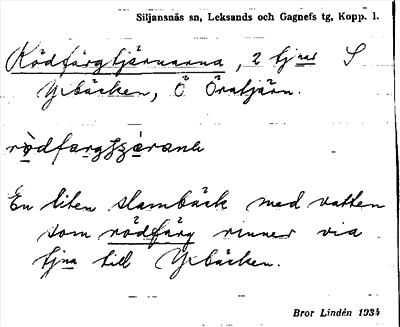 Siljansnäs sn, Leksands och Gagnefs tg, Kopp. l.
Rödfärgtjärnarna, 2 tjnar S
Yxbäcken, Ö Öratjärn.
En liten slambäck med vatten
som rödfärg rinner via
tjna till Yxbäcken.
Bror Lindén 1934